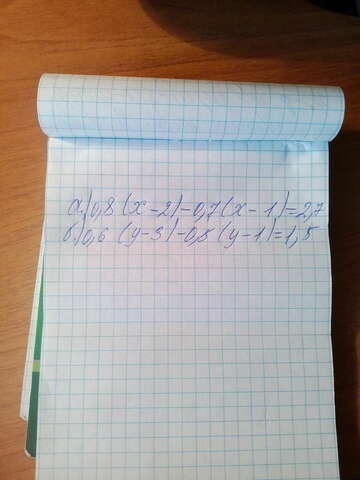 а)0,8(x-2)-0,7(x-1)=2,7
б)0,6(y-3)-0,5(y-1)=1,5